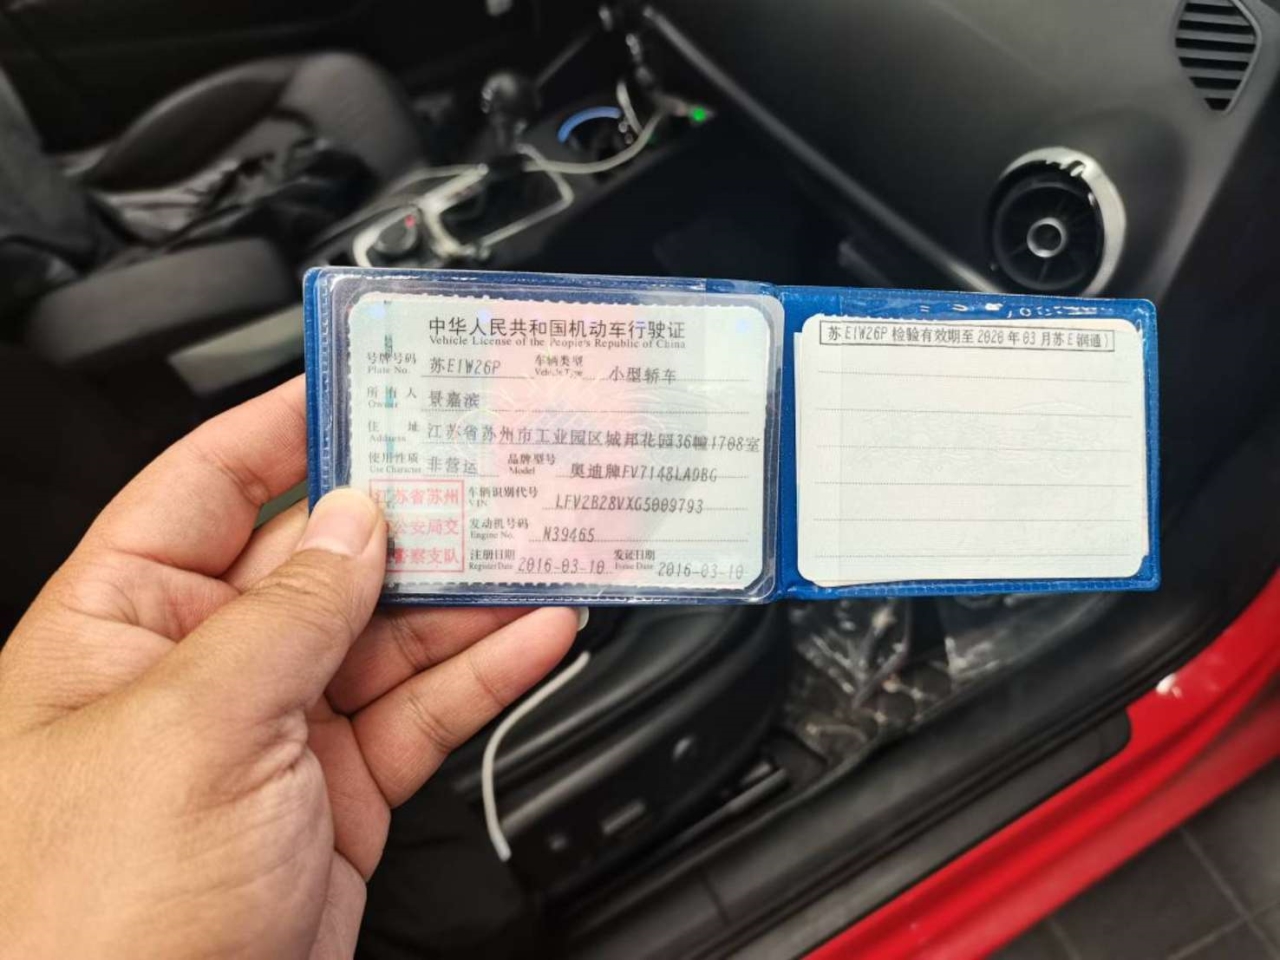 中华人民共和国机动车行驶证
Vehicle License of the People's Republic of China
号牌号码 苏E1W26P 车辆类型 小型轿车
Plate No. Vehicle Type
所有人 景嘉滨
Owner
住址 江苏省苏州市工业园区城邦花园36幢1708室
Address
使用性质 非营运 品牌型号 奥迪牌FV7148LADBG
Use Character Model
江苏省苏州
公安局交
警察支队
车辆识别代号 LFV2B28VXG5009793
VIN
发动机号码 N39465
Engine No.
注册日期 2016-03-10 发证日期 2016-03-10
Register Date Issue Date
苏E1W26P 检验有效期至2020年03月苏E